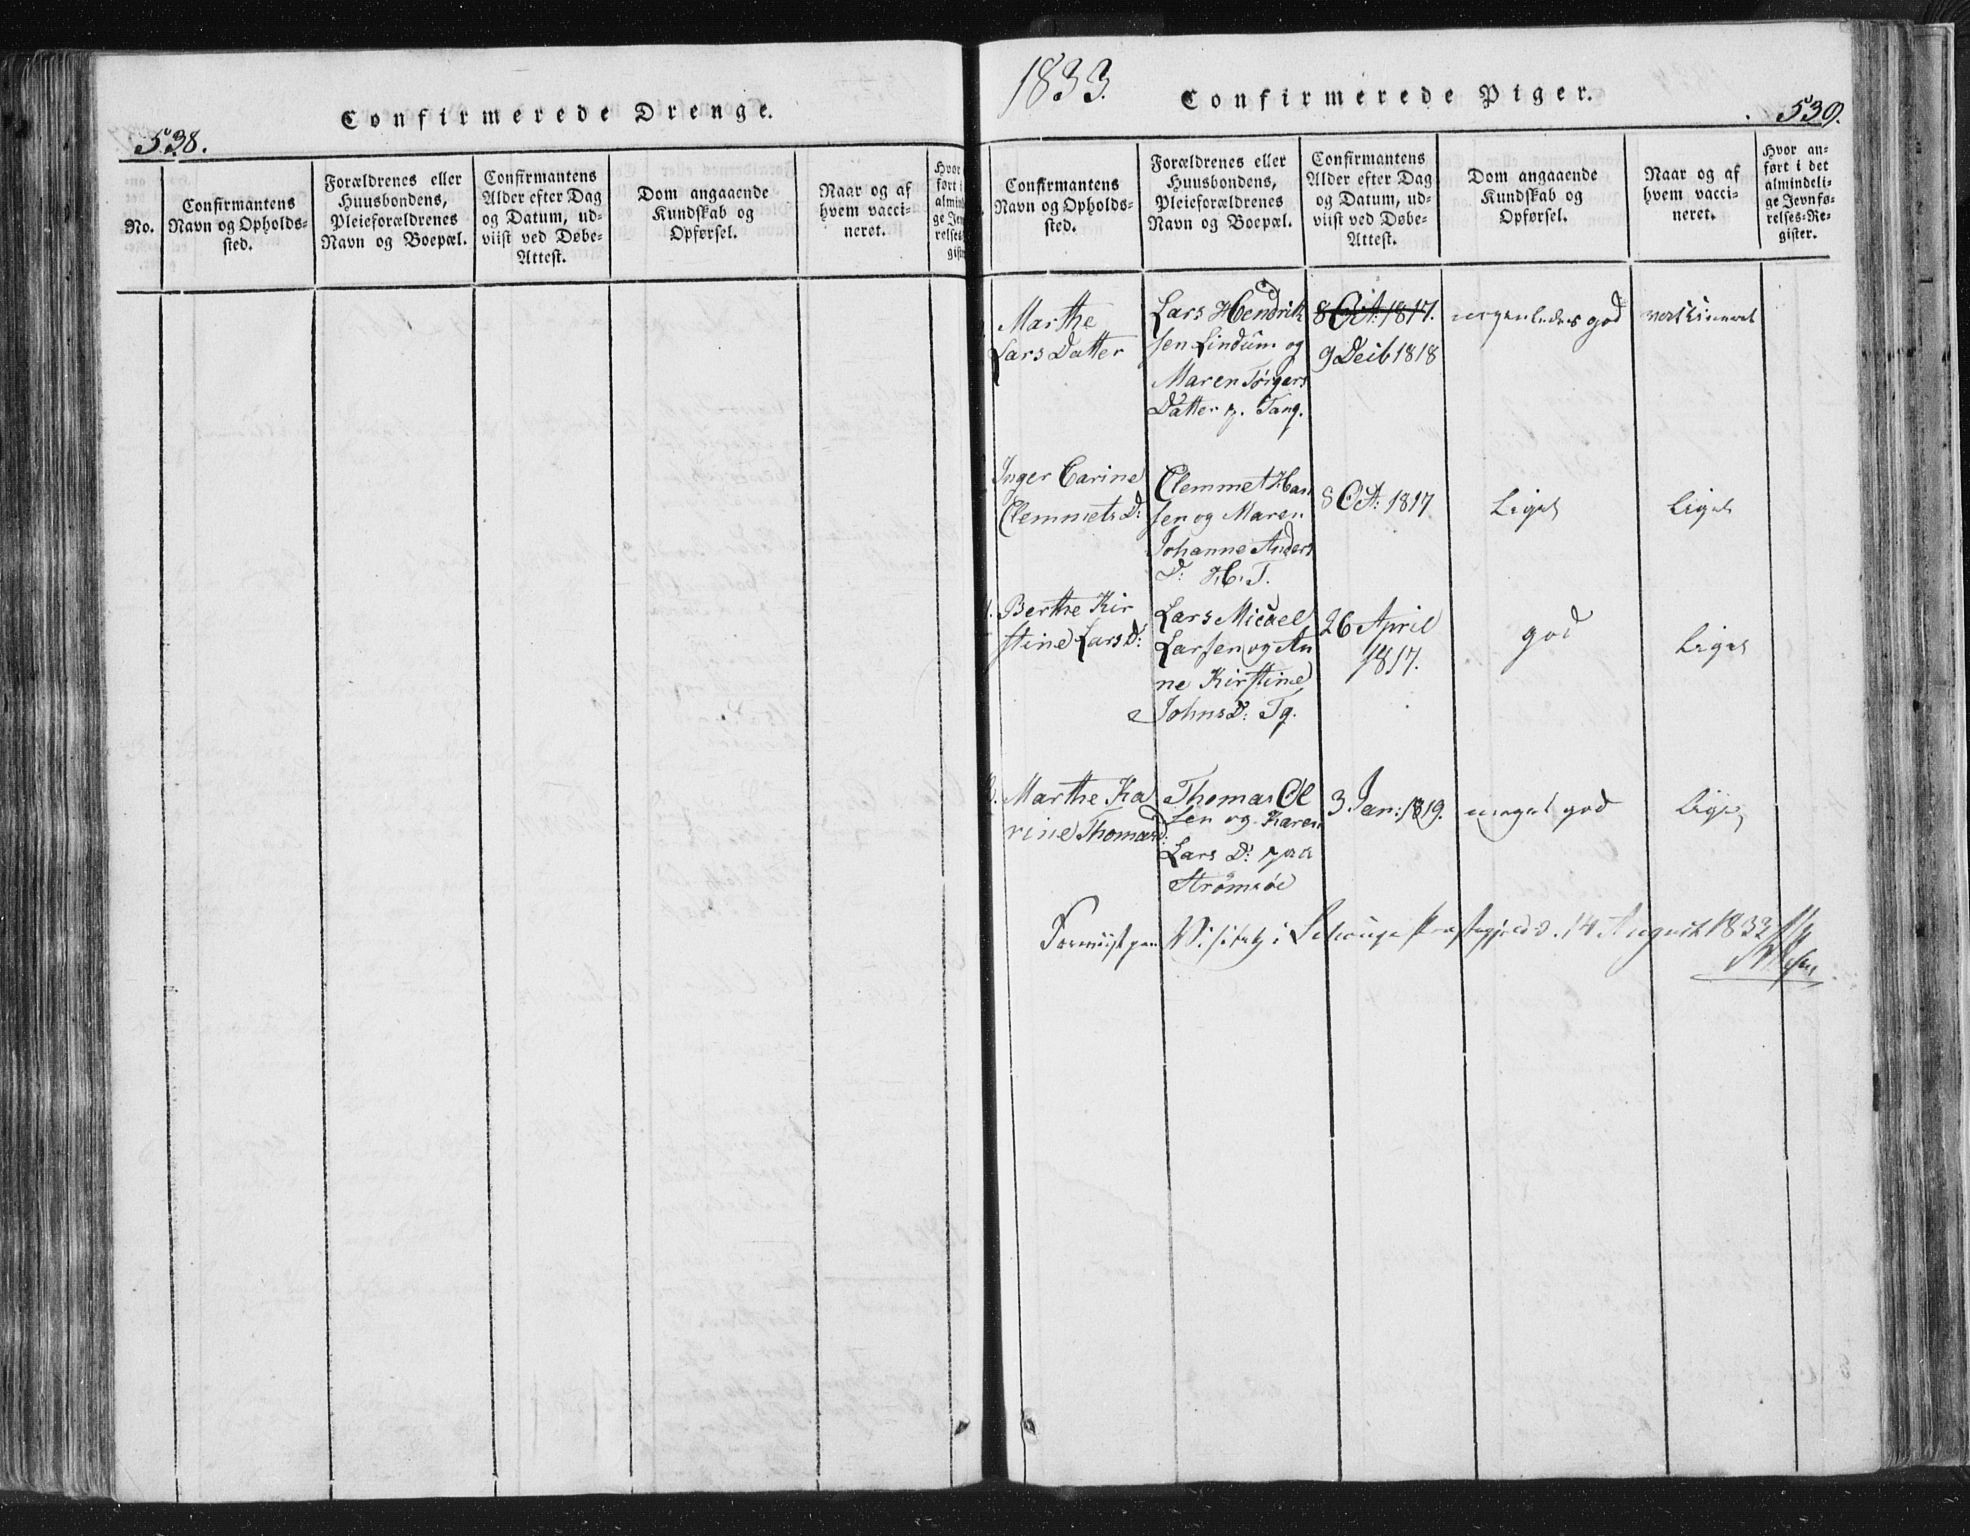 538.
Confirmerede Drenge.
No.
Confirmantens
Navn og Opholds-
sted.
Forældrenes eller
Huusbondens,
Pleieforældrenes
Navn og Boepæl.
Confirmantens
Alder efter Dag
og Datum, ud-
viist ved Døbe-
Attest.
Dom angaaende
Kundskab og
Opførsel.
Naar og af
hvem vacci-
neret.
Hvor
ført i
almind
ge Jev
relses
gist
1833.
Confirmerede Piger.
539.
Confirmantens
Navn og Opholds-
sted.
Forældrenes eller
Huusbondens,
Pleieforældrenes
Navn og Boepæl.
Confirmantens
Alder efter Dag
og Datum, ud-
viist ved Døbe-
Attest.
Dom angaaende
Kundskab og
Opførsel.
Naar og af
hvem vacci-
neret.
Hvor an-
ført i det
almindeli-
ge Jevnfø-
relses-Re-
gister.
Marthe
Lars Datter
Lars Hendrik
sen Lindum og
Maren Törgers
Datter Tang.
8 Oct: 1817.
9 Decb 1818
nogenledes god
vaccineret
Inger Carine
Clemmets D:
Clemmet Han
sen og Maren
Johanne Anders
D: H. T.
8 Oct: 1817
Ligel
Ligel
Berthe Kir
stine Lars D:
Lars Micael
Larsen og An
ne Kirstine
Johns D: Tg.
26 April
1817.
god
Ligel
Marthe Ka
rine Thomas D:
Thomas Ol
sen og Karen
Lars D: paa
Strömsöe
3 Jan: 1819.
meget god
Lige
i
Præstegjeld d. 14 August 1833